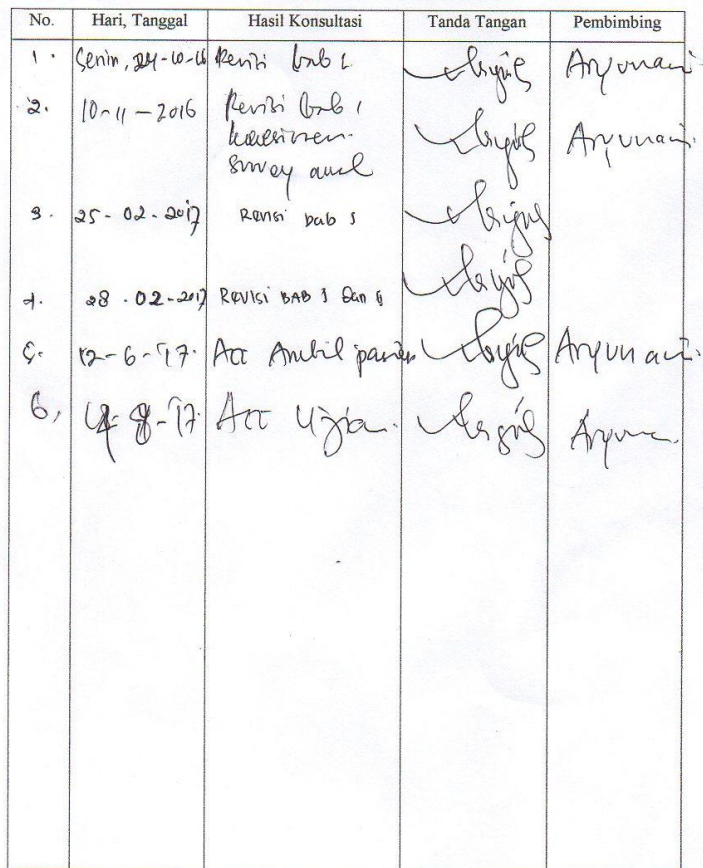 No. Hari, Tanggal Hasil Konsultasi Tanda Tangan Pembimbing
1. Senin, 24-10-16 Revisi bab 1 Aryunani
2. 10-11-2016 Revisi bab 1 Aryunani
kuesioner
survey awal
3. 25-02-2017 Revisi bab
4. 28-02-2017 Revisi BAB dan
5. 12-6-'17 Acc Ambil Aryunani
6, 8-'17 Acc Ujian.